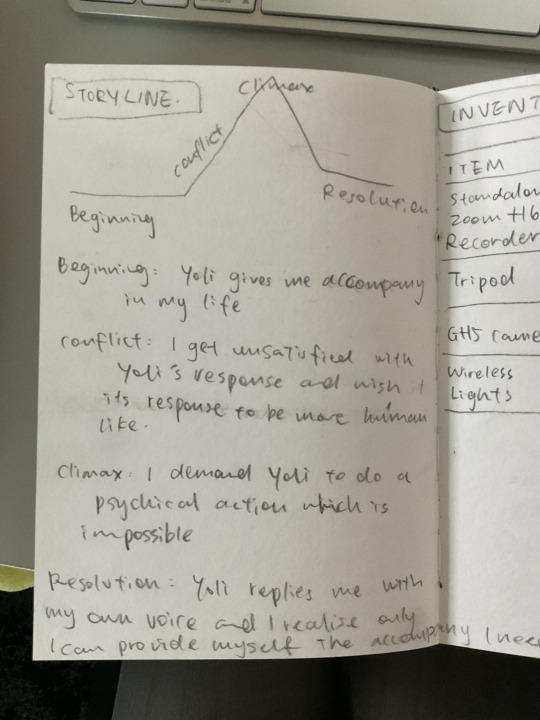 STORYLINE.
Climax
conflict
Beginning
Resolution
Beginning: Yoli gives me accompany
in my life
conflict: I get unsatisfied with
Yoli's response and wish
its response to be more human
like.
Climax: I demand Yoli to do a
psychical action which is
impossible
Resolution: Yoli replies me with
my own voice and I realise only
I can provide myself the accompany I need
INVENT
ITEM
Standalon
Zoom H6
Recorder
Tripod
GH5 came
Wireless
Lights